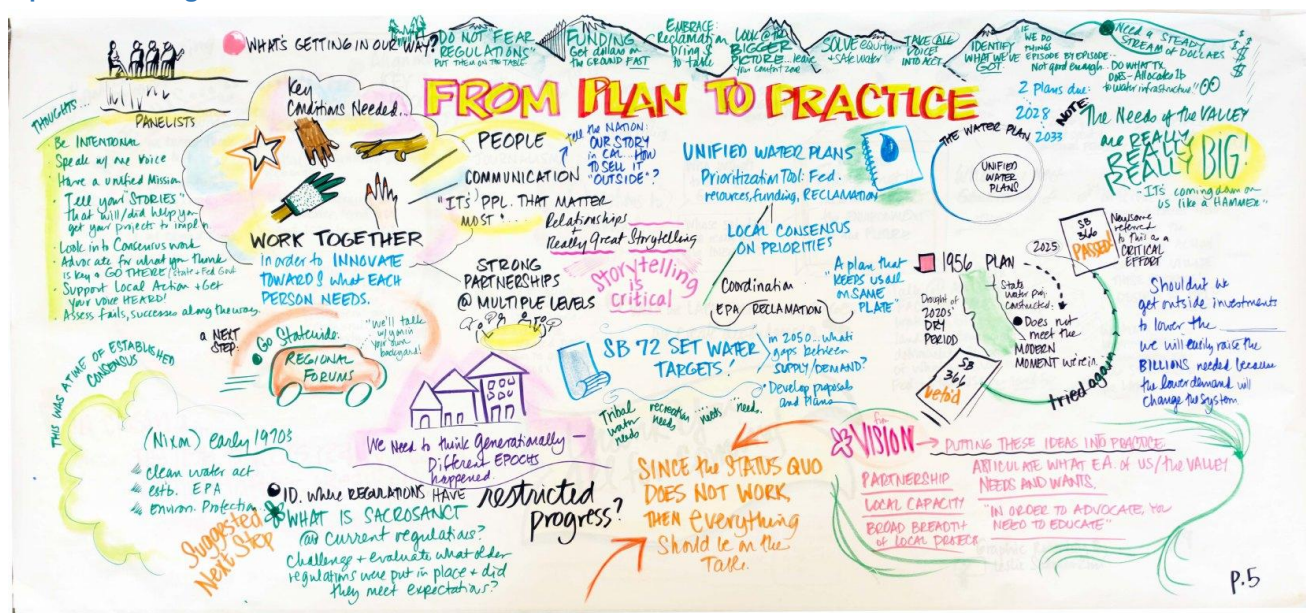 WHAT'S GETTING IN OUR WAY?
"DO NOT FEAR
REGULATIONS"
PUT THEM ON THE TABLE
FUNDING
Get dollars on
the GROUND FAST
EMBRACE:
Reclamation
bring $
to table
Look @ the
BIGGER
PICTURE... leave
your comfort zone
SOLVE equity...
+ safe water
TAKE CALL
VOICE
INTO ACT.
IDENTIFY
WHAT WE'VE
GOT.
IF
WE DO
THINGS
EPISODE BY EPISODE...
Not good enough...
DO WHAT TX.
DOES - Allocates 1b
to water infrastructure"
NEED A STEADY
STREAM OF DOLLARS
$ $ $ $
FROM PLAN TO PRACTICE
PANELISTS
THOUGHTS...
Be INTENTIONAL
Speak w/ one Voice
Have a unified Mission
Tell your "STORIES"
that will/did help you
get your projects to implem
Look into Consensus work
Advocate for what you think
is key & GO THERE (State + Fed Govt
Support Local Action + Get
your voice HEARD!
Assess fails, successes along the way.
Key
Conditions Needed...
WORK TOGETHER
in order to INNOVATE
TOWARDS what EACH
PERSON NEEDS.
PEOPLE
COMMUNICATION
"ITS' PPL. THAT MATTER
MOST"...
Tell the NATION:
OUR STORY
in CAL... HOW
TO SELL IT
"OUTSIDE"?
Relationships
+
Really Great Storytelling
Storytelling
is
critical
STRONG
PARTNERSHIPS
@ MULTIPLE LEVELS
UNIFIED WATER PLANS
Prioritization Tool: Fed.
resources, funding, RECLAMATION
LOCAL CONSENSUS
ON PRIORITIES
Coordination
EPA RECLAMATION
"A plan that
KEEPS us all
on SAME
PLATE"
2 Plans due:
2028
2033
THE WATER PLAN
UNIFIED
WATER
PLANS
NOTE:
The Needs of the VALLEY
are REALLY
REALLY
REALLY BIG!
"ITS coming down on
us like a HAMMER"
1956 PLAN
State
water proj.
Constructed:
Does not
meet the
MODERN
MOMENT we're in.
Drought of
2020s'
DRY
PERIOD
2025
SB
366
PASSED
Newsome
referred
to this as a
CRITICAL
EFFORT
SB
366
veto'd
tried again
Shouldn't we
get outside investments
to lower the ______
we will easily raise the
BILLIONS needed because
the lower demand will
change the system
a NEXT
STEP.
Go Statewide.
REGIONAL
FORUMS
"we'll talk
w/ you in
your own
backyard!
SB 72 SET WATER
TARGETS!
in 2050.. what
gaps between
SUPPLY/DEMAND?
Develop proposals
and Plans
Tribal
water
needs
recreation
needs
need.
We Need to think Generationally -
Different EPOCHS
happened.
THIS WAS A TIME OF ESTABLISHED
CONSENSUS
(Nixon) early 1970s
clean water act
estb. EPA
environ. Protection...
Suggested
Next Step
ID. where REGULATIONS HAVE restricted
progress?
WHAT IS SACROSANCT
@ current regulations?
Challenge + evaluate what older
regulations were put in place + did
they meet expectations?
SINCE the STATUS QUO
DOES NOT WORK,
THEN everything
Should be on the
Table.
VISION
for
PUTTING THESE IDEAS INTO PRACTICE
PARTNERSHIP
LOCAL CAPACITY
BROAD BREADTH
of LOCAL PROJECTS
ARTICULATE WHAT EA. of US/the VALLEY
NEEDS AND WANTS.
"IN ORDER TO ADVOCATE, YOU
NEED TO EDUCATE"
P.5